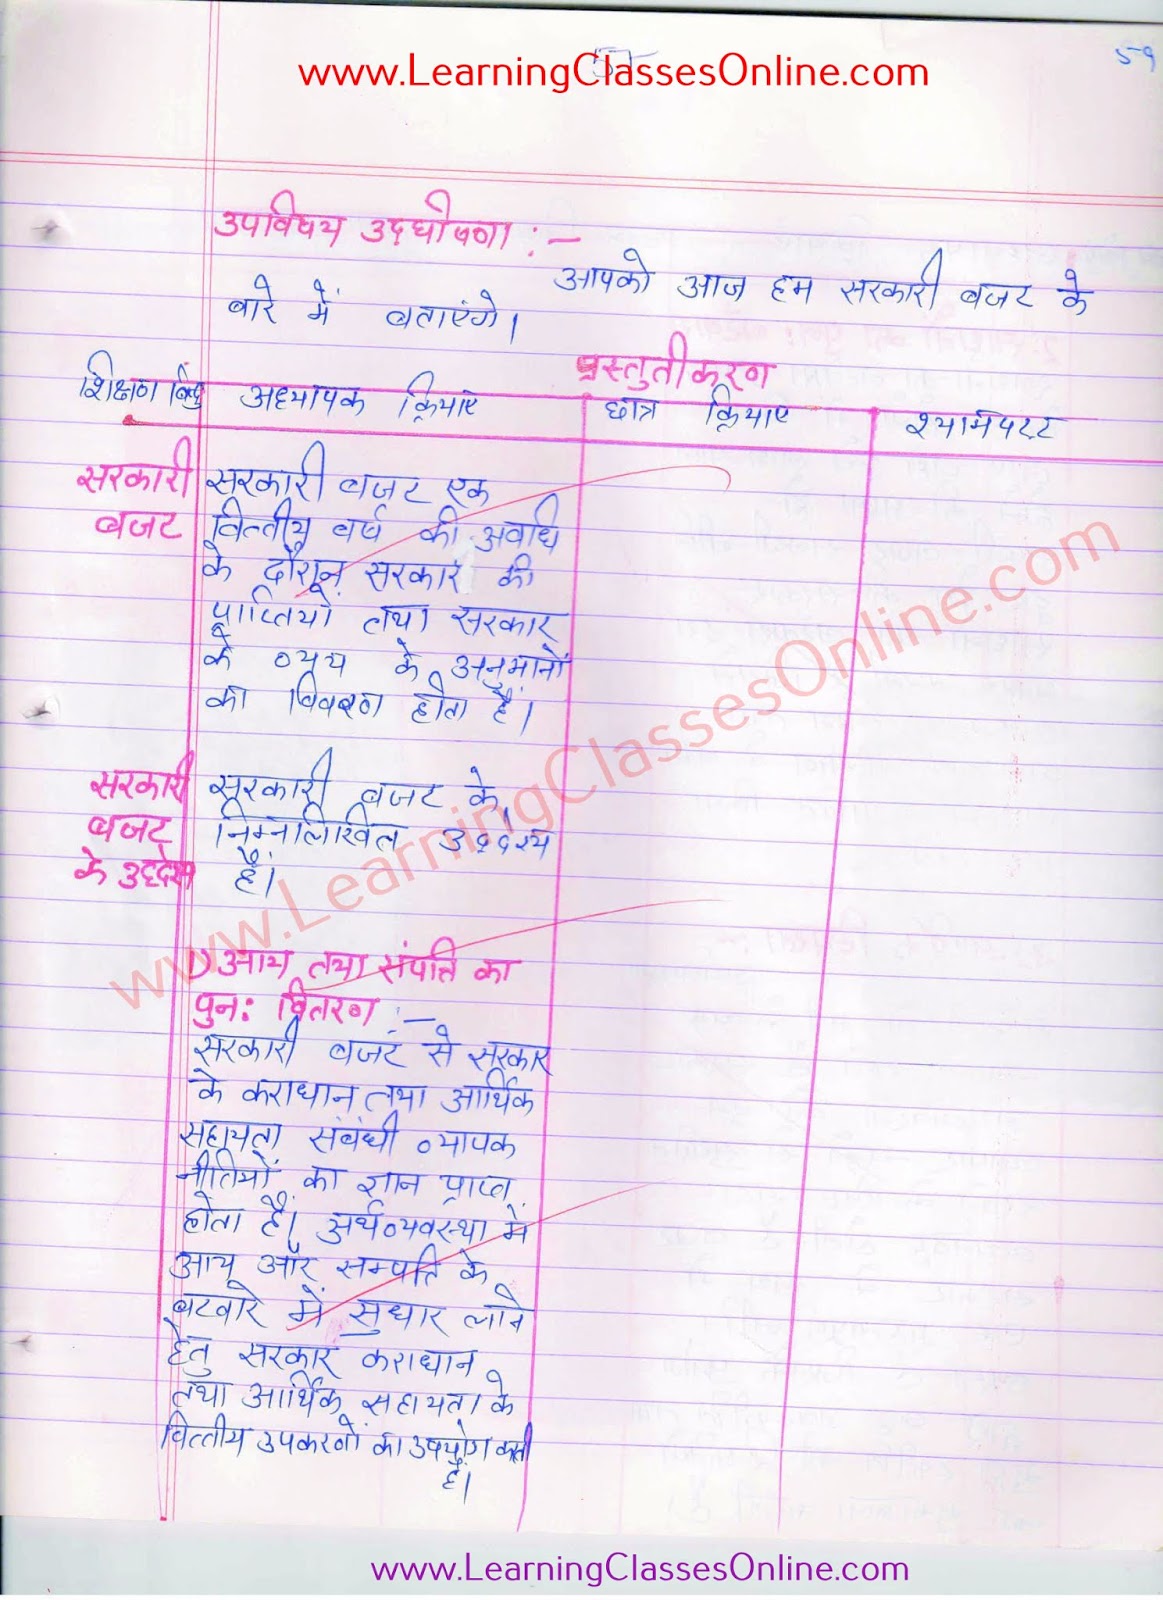 59
www.LearningClassesOnline.com
उपविषय उदघोषणा :-
आपको आज हम सरकारी बजट के
बारे में बताएंगे।
प्रस्तुतीकरण
शिक्षण बिंदु अध्यापक क्रियाए छात्र क्रियाए श्यामपटट
सरकारी
बजट
सरकारी बजट एक
वित्तीय वर्ष की अवधि
के दौरान सरकार की
प्राप्तियों तथा सरकार
के व्यय के अनुमानों
का विवरण होता है।
सरकारी
बजट
के उद्देश्य
सरकारी बजट के
निम्नलिखित उद्देश्य
हैं।
1) आय तथा संपत्ति का
पुन: वितरण :-
सरकारी बजट से सरकार
के कराधान तथा आर्थिक
सहायता संबंधी व्यापक
नीतियों का ज्ञान प्राप्त
होता है। अर्थव्यवस्था में
आय और सम्पति के
बटवारे में सुधार लाने
हेतु सरकार कराधान
तथा आर्थिक सहायता के
वित्तीय उपकरणों का उपयोग करती
है।
www.LearningClassesOnline.com
www.LearningClassesOnline.com